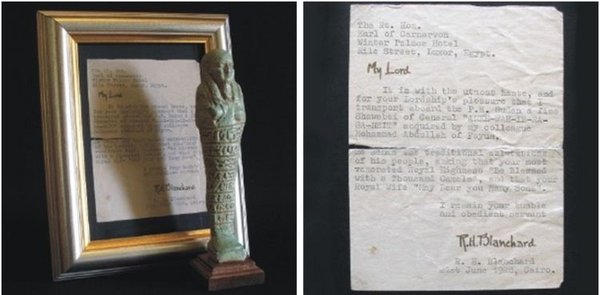 The Rt. Hon.
Earl of Carnarvon
Winter Palace Hotel
Nile Street, Luxor, Egypt.
My Lord
It is with the utmost haste, and
for your Lordship's pleasure that I
transport aboard the P.S. Sudan a fine
Shawabti of General
acquired by my colleague
Mohammad Abdullah of Fayum.
He sends the traditional
of his people, asking that your most
venerated Royal Highness "Be Blessed
with a Thousand Camels", and that your
Royal Wife "May Bear you Many Sons".
I remain your humble
and obedient servant
R.H.Blanchard
R. H. Blanchard
21st June Cairo.